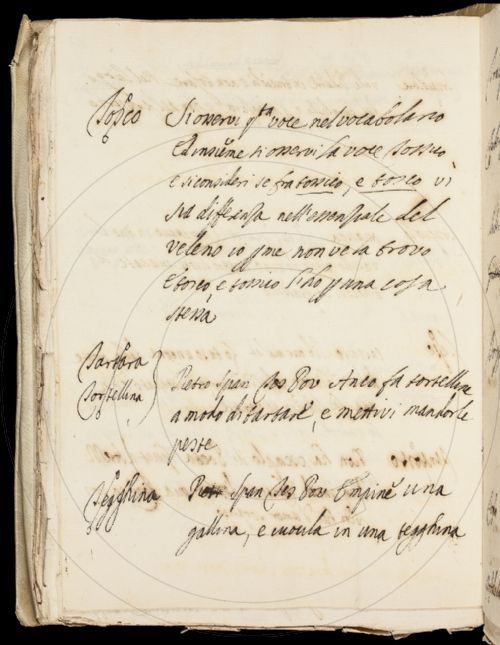 Tosco Si osservi q.ta voce nel vocabolario
Ed insieme si osservi la voce Tossico
e si consideri se fra tossico, e tosco vi
sia differenza nell'essenziale del
veleno io p me non ve la trovo
E tosco, e tossico l'ho p una cosa
stessa
Tartara
Tortellina
Pietro Span Tes Pov Anco fa tortelline
a modo di tartare, e mettivi mandorle
peste
Tegghina Pietr Span Tes Pov Empine una
gallina, e cuocila in una tegghina